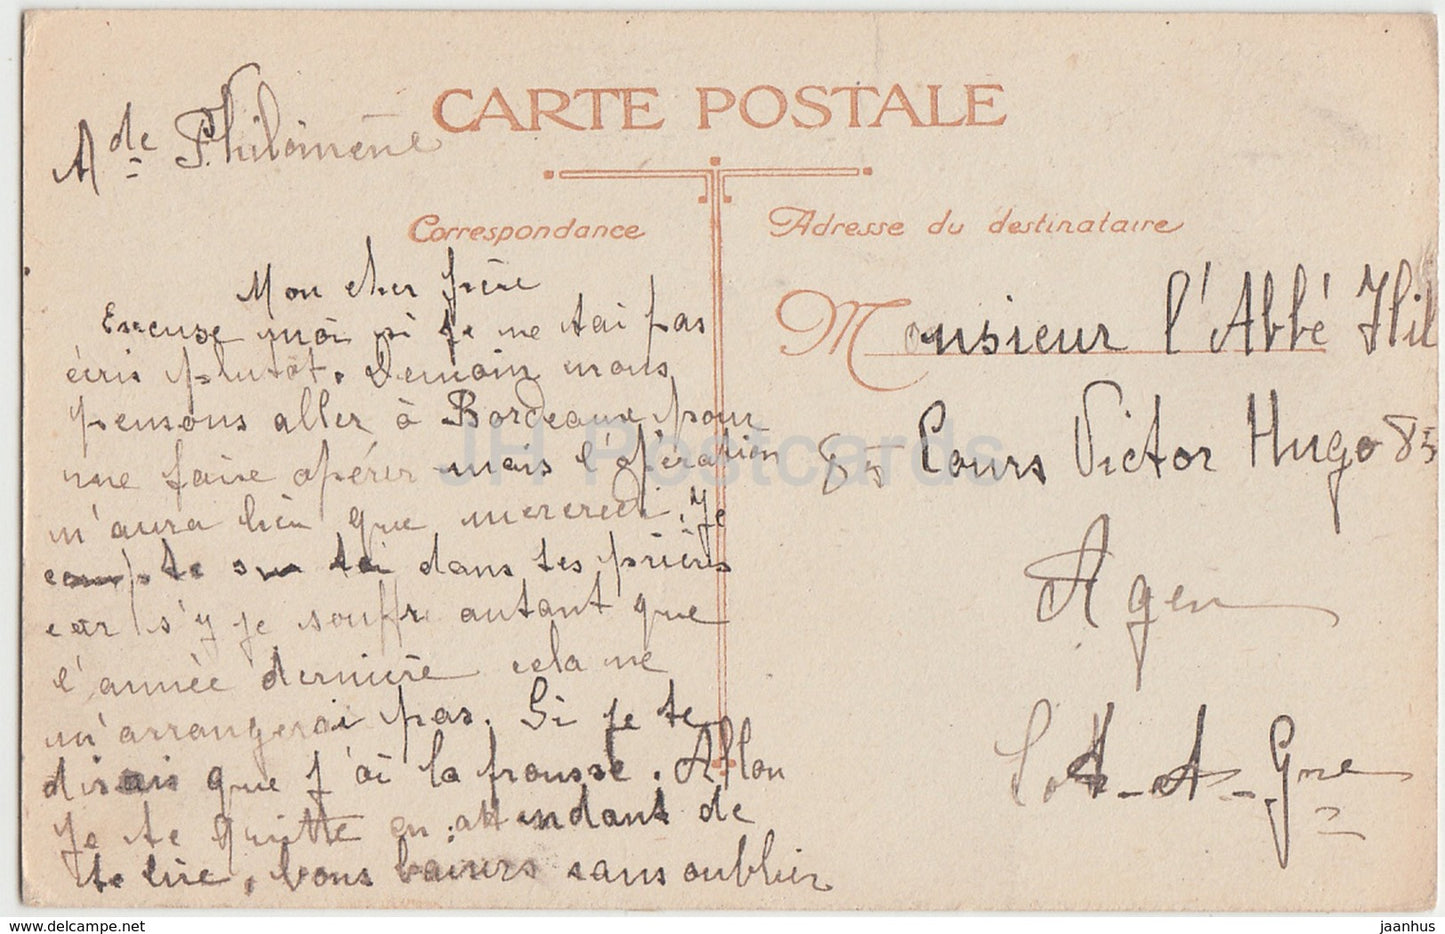 CARTE POSTALE
Mde Philomène
Correspondance
Mon cher frère
Excuse moi si je ne tai pas
écris plutôt. Demain nous
pensons aller à Bordeaux, pour
me faire opérer mais l'opération
n'aura lieu que mercredi. Je
compte sur toi dans tes prières
car s'y je souffre autant que
l'année dernière cela ne
m'arrangerai pas. Si je te
disais que j'ai la frousse. Allon
Je te quitte en attendant de
te lire, bons baisers sans oublier
Adresse du destinataire
Monsieur l'Abbé Hil
85 Cours Victor Hugo 85
Agen
Lot-et-Gne
JH Postcards
jaanhus